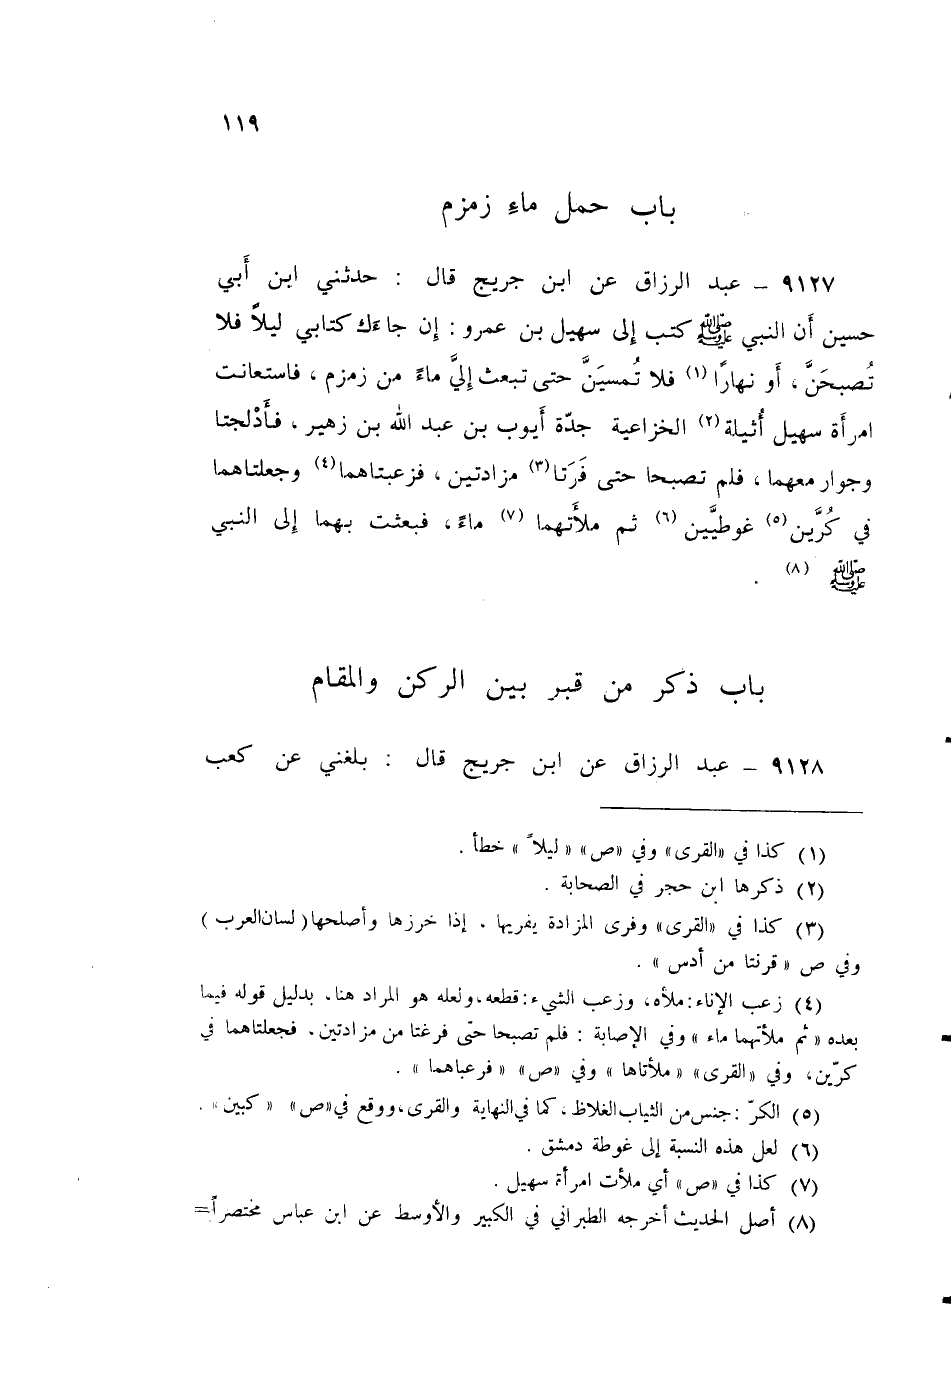 ١١٩
باب حمل ماءِ زمزم
٩١٢٧ – عبد الرزاق عن ابن جريج قال : حدثني ابن أَبي
حسين أَن النبي ﷺ كتب إلى سهيل بن عمرو : إن جاءَك كتابي ليلاً فلا
تُصبحَنَّ ، أَو نهارًا (١) فلا تُمسيَنَّ حتى تبعث إليَّ ماءً من زمزم ، فاستعانت
امرأَة سهيل أُثيلة (٢) الخزاعية جدّة أَيوب بن عبد الله بن زهير ، فأَدْلجتا
وجوار معهما ، فلم تصبحا حتى فَرَتا (٣) مزادتين ، فزعبتاهما (٤) وجعلتاهما
في كُرَّين (٥) غوطيَّين (٦) ثم ملأَتهما (٧) ماءً ، فبعثت بهما إلى النبي
ﷺ (٨) .
باب ذكر من قبر بين الركن والمقام
٩١٢٨ – عبد الرزاق عن ابن جريج قال : بلغني عن كعب
(١) كذا في «القرى» وفي «ص» « ليلاً » خطأ .
(٢) ذكرها ابن حجر في الصحابة .
(٣) كذا في «القرى» وفرى المزادة يفريها . إذا خرزها وأصلحها ( لسان العرب )
وفي ص « قرنتا من أدس » .
(٤) زعب الإناء : ملأه، وزعب الشيء : قطعه، ولعله هو المراد هنا، بدليل قوله فيما
بعده « ثم ملأتهما ماء » وفي الإصابة : فلم تصبحا حتى فرغتا من مزادتين، فجعلتاهما في
كرّين، وفي «القرى» «ملأتاها » وفي «ص» « فرعباهما » .
(٥) الكرّ : جنس من الثياب الغلاظ ، كما في النهاية والقرى، ووقع في «ص» « كبين » .
(٦) لعل هذه النسبة إلى غوطة دمشق .
(٧) كذا في «ص» أي ملأت امرأة سهيل .
(٨) أصل الحديث أخرجه الطبراني في الكبير والأوسط عن ابن عباس مختصراً =